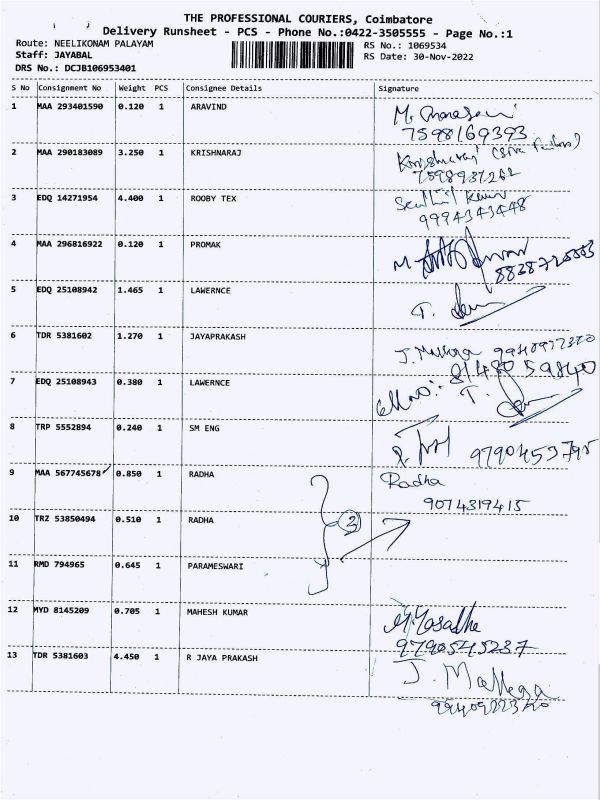 THE PROFESSIONAL COURIERS, Coimbatore
Delivery Runsheet - PCS - Phone No.:0422-3505555 - Page No.:1
Route: NEELIKONAM PALAYAM
RS No.: 1069534
Staff: JAYABAL
RS Date: 30-Nov-2022
DRS No.: DCJB106953401
S No Consignment No Weight PCS Consignee Details Signature
1 MAA 293401590 0.120 1 ARAVIND
7598169393
2 MAA 290183089 3.250 1 KRISHNARAJ
7598937262
3 EDQ 14271954 4.400 1 ROOBY TEX
9994343448
4 MAA 296816922 0.120 1 PROMAK
M.
5 EDQ 25108942 1.465 1 LAWERNCE
T.
6 TDR 5381602 1.270 1 JAYAPRAKASH J. Mallega
81480 59840
7 EDQ 25108943 0.380 1 LAWERNCE T.
8 TRP 5552894 0.240 1 SM ENG
9790453795
9 MAA 567745678 0.850 1 RADHA Radha
9074319415
10 TRZ 53850494 0.510 1 RADHA 2
11 RMD 794965 0.645 1 PARAMESWARI
12 MYD 8145209 0.705 1 MAHESH KUMAR
9790545237
13 TDR 5381603 4.450 1 R JAYA PRAKASH J. Mallega